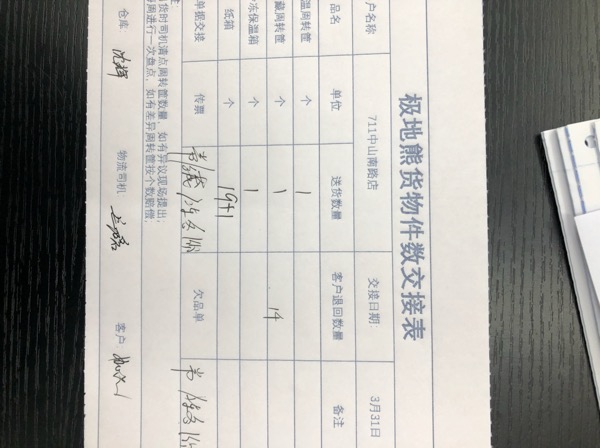 极地熊货物件数交接表
户名称 711中山南路店 交接日期: 3月31日
品名 单位 送货数量 客户退回数量 备注
温周转筐 个 1
藏周转筐 个 1 14
冻保温箱 个 1
纸箱 个 19+1
单据交接 传票 欠品单
货时司机清点周转筐数量,如有异议现场提出;
周进行一次盘点,如有差异周转筐按个数赔偿;
仓库: 物流司机 客户